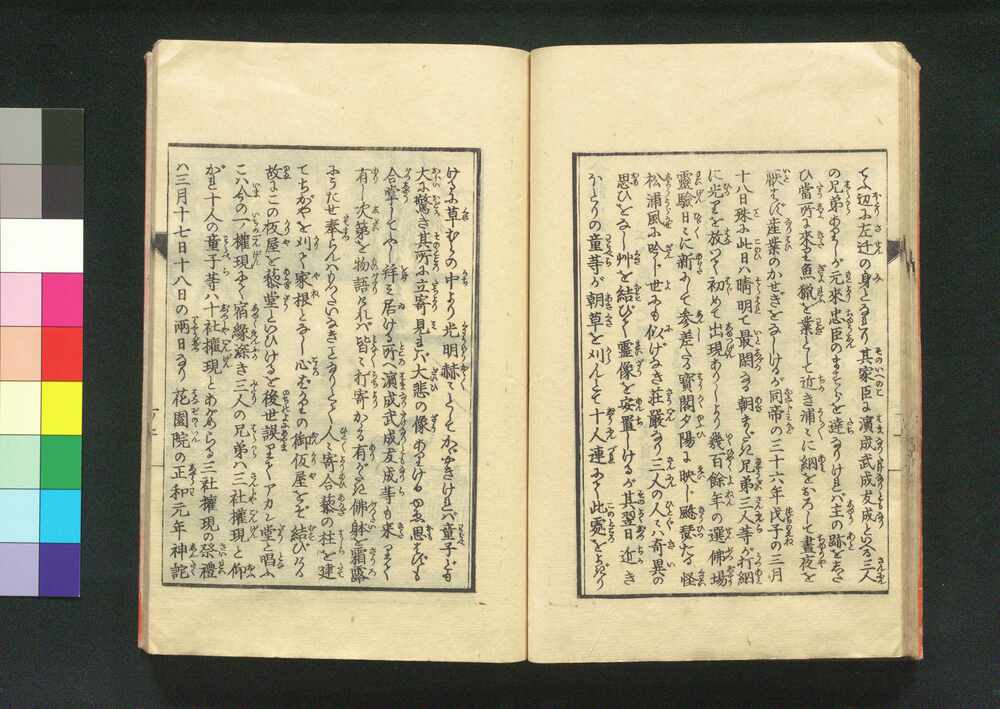 て此辺に左迁の身となれり其家臣に濱成武成友成といへる三人
の兄弟ありしが元来忠臣のますらを達なりければ主の跡をした
ひ當所に来り魚猟を業として近き浦々に網をおろして昼夜を
産業のかせぎをなしけるが同帝の三十六年戊子の三月
十八日殊に此日ハ晴明て最閑なる朝またき兄弟三人等が打網
に光りを放つて初めて出現ありしより幾百餘年の選佛場
靈驗日々に新にして参差たる寶閣夕陽に映じ颺々たる怪
松浦風に吟じ世にも似げなき荘嚴なり三人の人々ハ奇異の
思ひをなし艸を結びて霊像を安置しけるが其翌日近き
わたりの童等が朝草を刈んとて十人連にて此處をよぎり
けるに草むらの中より光明赫々としてかゞやきければ童子ども
大に驚き其所に立寄見れバ大悲の像ありけるゆゑ思はども
合掌してや拝ミ居ける所へ濱成武成友成等も来りて
有し次第を物語れバ皆々打寄かゝる有がたき佛躰を霜露
にうたせ奉らんハもつたいなきことなりとて人々寄合藜の柱を建
てちがやを刈て家根となし心ばかりの御仮屋をぞ結びける
故にこの仮屋を藜堂といひけるを後世誤りてアカン堂と唱ふ
こハ今の一ノ権現にて宿縁深き三人の兄弟ハ三社権現と仰
がれ十人の童子等ハ十社権現とあがめらる三社権現の祭禮
ハ三月十七日十八日の両日なり花園院の正和元年神詫